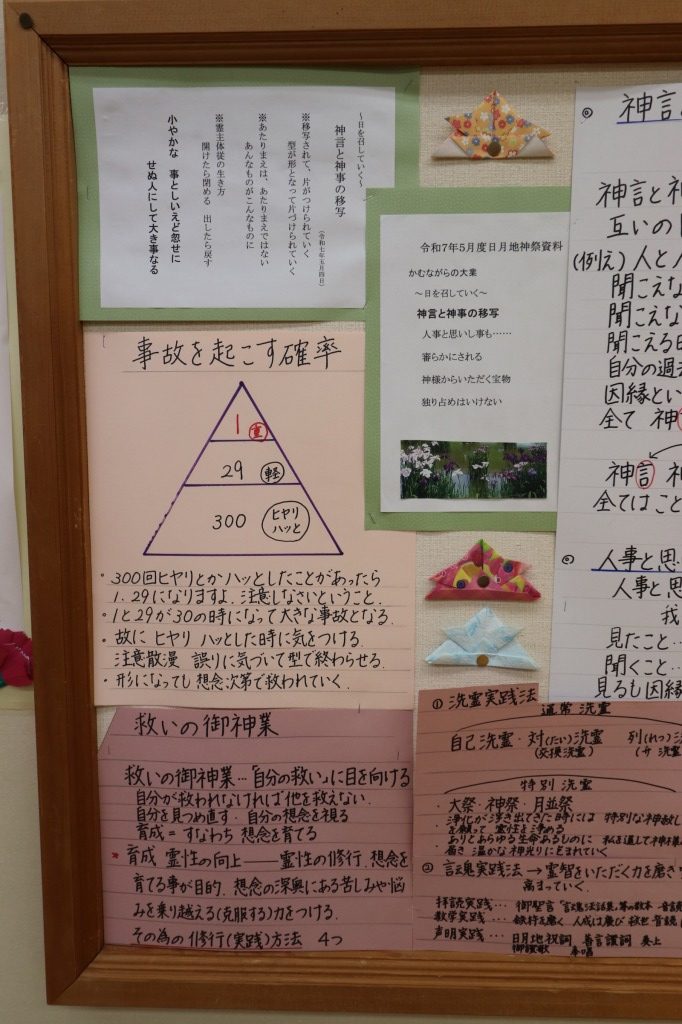 ～日を召していく～
神言と神事の移写
(令和七年五月四日)
※移写されて、片がつけられていく
型が形となって片づけられていく
※あたりまえは、あたりまえではない
あんなものがこんなものに
※霊主体従の生き方
開けたら閉める 出したら戻す
小やかな 事としいえど忽せに
せぬ人にして大き事なる
令和7年5月度日月地神祭資料
かむながらの大業
～日を召していく～
神言と神事の移写
人事と思いし事も……
審らかにされる
神様からいただく宝物
独り占めはいけない
事故を起こす確率
1 重
29 軽
300 ヒヤリ
ハッと
・300回ヒヤリとかハッとしたことがあったら
1.29になりますよ.注意しなさいということ.
・1と29が30の時になって大きな事故となる.
・故に ヒヤリ ハッとした時に気をつける.
注意散漫 誤りに気づいて型で終わらせる.
・形になっても 想念次第で救われていく.
救いの御神業
救いの御神業…「自分の救い」に目を向ける
自分が救われなければ他を救えない.
自分を見つめ直す. 自分の想念を視る
育成=すなわち 想念を育てる
* 育成 霊性の向上――霊性の修行. 想念を
育てる事が目的. 想念の深奥にある苦しみや悩
みを乗り越える(克服する)力をつける.
その為の修行(実践)方法 4つ
◎ 神言
神言と神
互いの
(例え) 人と人
聞こえな
聞こえな
聞こえる
自分の過
因縁とい
全て 神
神言 神
全てはこと
◎ 人事と思
人事と思
我
見たこと…
聞くこと…
見るも因縁
① 洗霊実践法
通常 洗霊
自己洗霊・対(たい)洗霊 列(れつ)
(交換洗霊)
特別 洗霊
・大祭・神祭・月並祭
浄化が浮き出てきた時には 特別な神献
を願って 霊性を浄める
ありとあらゆる生命あるものに 私を通して神様
磨き 温かな神光りに包まれていく
② 言魂実践法 → 霊智をいただく力を磨き
高まっていく.
拝読実践…
声明実践… 日月地祝詞 善言讃詞 奏上
御讃歌 奉唱